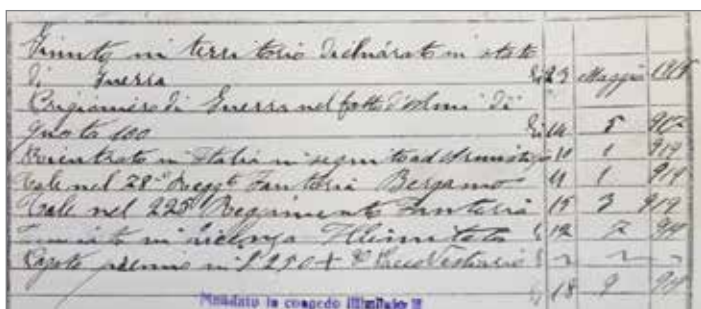 Giunto in territorio dichiarato in stato
di Guerra li 23 Maggio
Prigioniero di Guerra nel fatto d'armi di
quota 100 li 14 5
Rientrato in Italia in seguito ad Armistizio 10 1 919
Tale nel 28° Regg° Fanteria Bergamo 11 1 919
Tale nel 225° Reggimento Fanteria 15 3 919
in licenza Illimitata 12 7 919
Pagato premio in £ 250 + Pacco Vestiario
18 9 919
Mandato in congedo illimitato